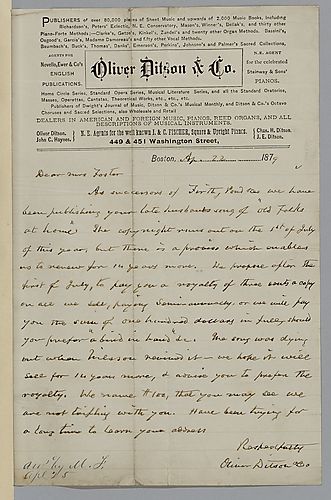 PUBLISHERS of over 80,000 pieces of Sheet Music and upwards of 2,000 Music Books, including
Richardson's, Peters' Eclectic, N. E. Conservatory, Mason's, Winner's, Bellak's, and thirty other
Piano-Forte Methods;—Clarke's, Getze's, Kinkel's, Zundel's and twenty other Organ Methods. Bassini's,
Osgood's, Garcia's, Madame Damoreau's and fifty other Vocal Methods.
Baumbach's, Buck's, Thomas', Danks', Emerson's, Perkins', Johnson's and Palmer's Sacred Collections,
AGENTS FOR
Novello, Ewer & Co's
ENGLISH
PUBLICATIONS.
Oliver Ditson & Co.
N. E. AGENT
for the celebrated
Steinway & Sons'
PIANOS.
Home Circle Series, Standard Opera Series, Musical Literature Series, and all the Standard Oratorios,
Masses, Operettas, Cantatas, Theoretical Works, etc., etc., etc.
Publishers of Dwight's Journal of Music, Ditson & Co.'s Musical Monthly, and Ditson & Co.'s Octavo
Choruses and Sacred Selections, also Wholesale and Retail
DEALERS IN AMERICAN AND FOREIGN MUSIC, PIANOS, REED ORGANS, AND ALL
DESCRIPTIONS OF MUSICAL INSTRUMENTS.
Oliver Ditson.
John C. Haynes.
N. E. Agents for the well known J. & C. FISCHER, Square & Upright Pianos.
Chas. H. Ditson.
J. E. Ditson.
449 & 451 Washington Street,
Boston, Ap. 22 1879
Dear Mrs Foster
As successors of Firth, Pond &co we have
been publishing your late husbands song of "Old Folks
at home" The copyright runs out on the 1st of July
of this year but there is a proviso which enables
us to renew for 14 years more. We propose after the
first of July, to pay you a royalty of three cents a copy
on all we sell, paying Semi-annually. or we will pay
you the sum of one hundred dollars in full, should
you prefer "a bird in hand" &c. The song was dying
out when Nilsson revived it — we hope it will
sell for 14 years more, & advise you to prefer the
royalty. We name $100, that you may see we
are not trifling with you. Have been trying for
a long time to learn your address
Respectfully
Oliver Ditson & Co